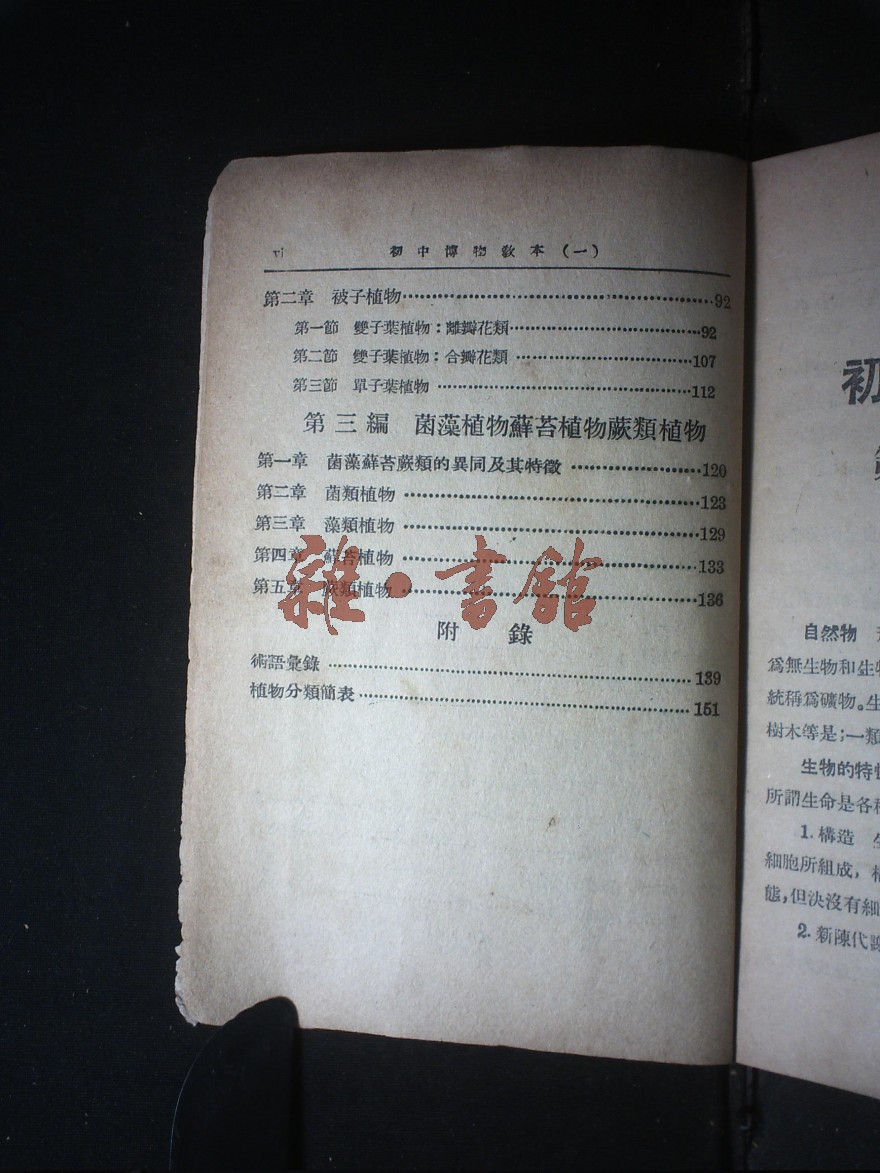 vi 初中博物教本(一)
第二章 被子植物……92
第一節 雙子葉植物:離瓣花類……92
第二節 雙子葉植物:合瓣花類……107
第三節 單子葉植物……112
第三編 菌藻植物蘚苔植物蕨類植物
第一章 菌藻蘚苔蕨類的異同及其特徵……120
第二章 菌類植物……123
第三章 藻類植物……129
第四章 蘚苔植物……133
第五章 蕨類植物……136
雜·書館
附 錄
術語彙錄……139
植物分類簡表……151
初
自然物
爲無生物和生物
統稱爲礦物。生
樹木等是;一類
生物的特性
所謂生命是各種
1.構造 生
細胞所組成,
態,但決沒有細
2.新陳代謝